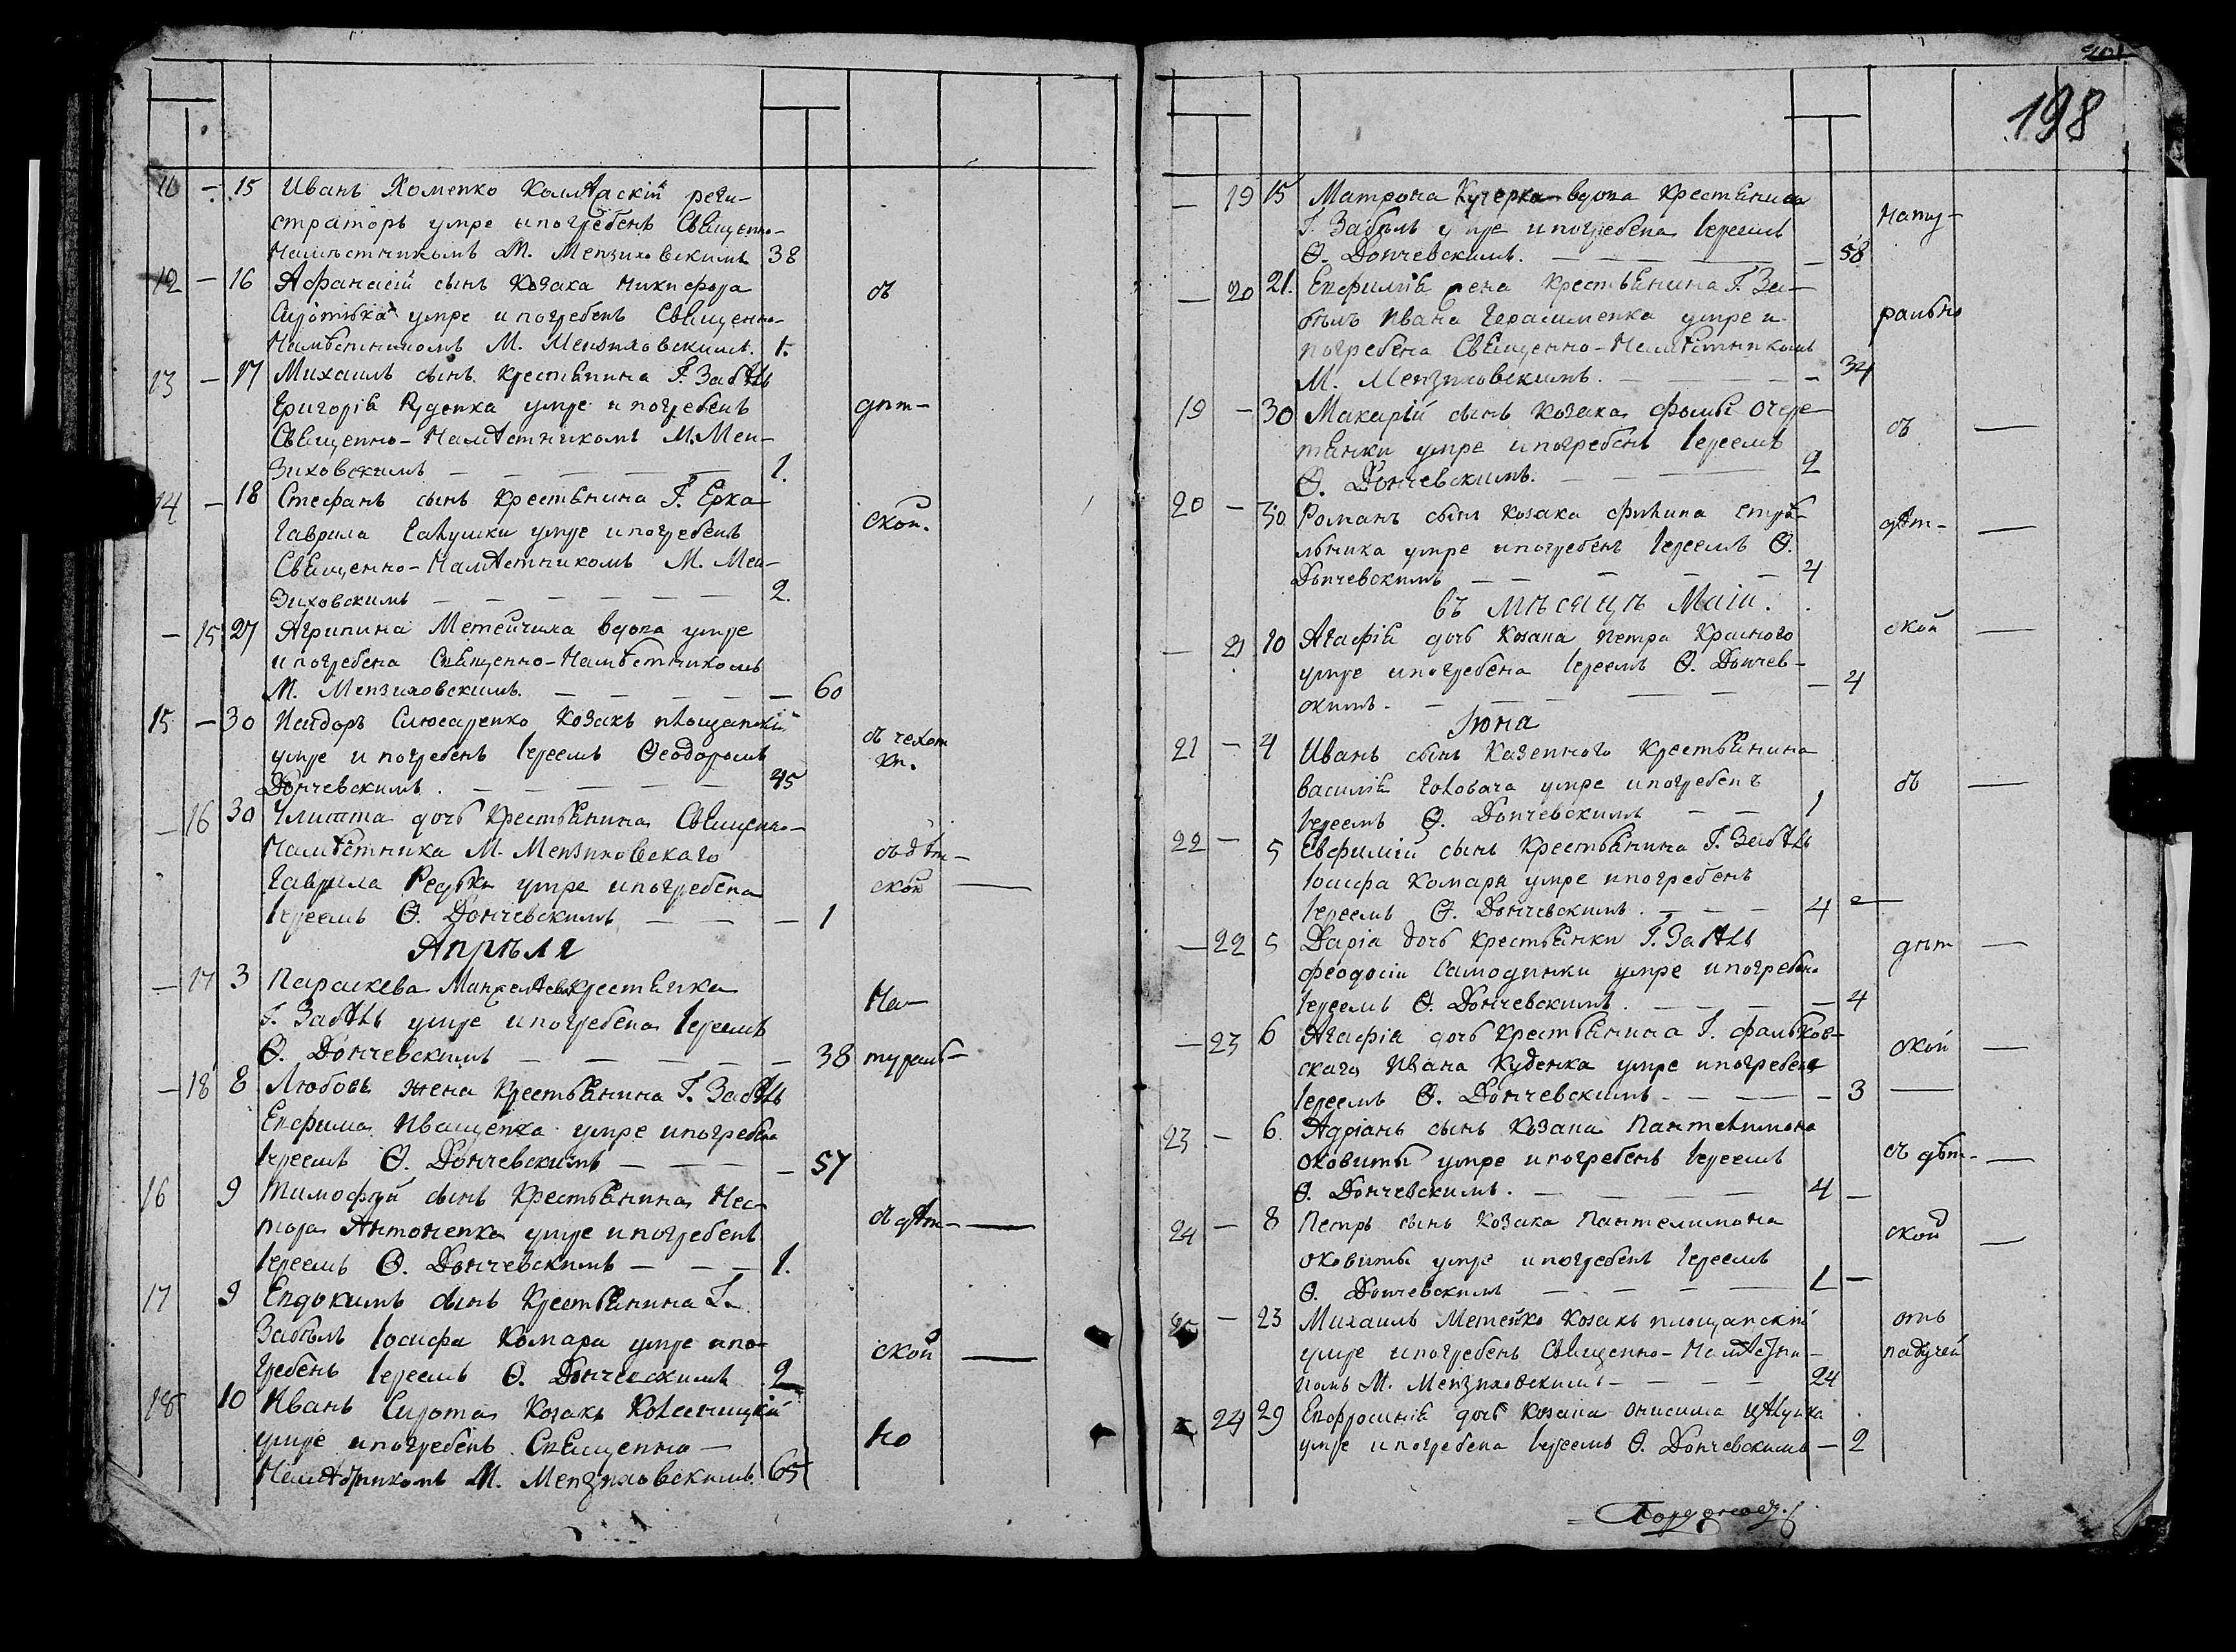 198
11 — 15 Иванъ Хоменко Коллѣскій реги-
страторъ умре и погребенъ Священно-
Намѣстникомъ М. Мензиховскимъ 38
12 — 16 Афанасій сынъ козака Никифора
умре и погребенъ Священно- съ
Намѣстникомъ М. Мензиховскимъ. 1.
13 — 17 Михаилъ сынъ крестьянина Г. Забѣлъ
Григорія Руденка умре и погребенъ дѣт-
Священно-Намѣстникомъ М. Мен-
зиховскимъ — — — — 1.
14 — 18 Стефанъ сынъ крестьянина Г. Ерка
Гаврила умре и погребенъ ской.
Священно-Намѣстникомъ М. Мен-
зиховскимъ — — — — — — 2.
— 15 27 Агрипина Метейчиха вдова умре
и погребена Священно-Намѣстникомъ
М. Мензиховскимъ. — — — — — 60
15 — 30 Исидоръ Слюсаренко козакъ площанскій
умре и погребенъ Іереемъ Ѳеодоромъ съ чехот
Дончевскимъ. — — — — — 45 ки.
— 16 30 Улитта дочъ крестьянина Священно-
Намѣстника М. Мензиховскаго съ дѣт-
Гаврила Редьки умре и погребена ской —
Іереемъ Ѳ. Дончевскимъ — — — 1
Апрѣля
— 17 3 Параскева крестьянка
Г. Забѣлъ умре и погребена Іереемъ На-
Ѳ. Дончевскимъ — — — — — 38 тураль-
— 18 8 Любовь жена крестьянина Г. Забѣлъ
Евфима Иващенка умре и погребена
Іереемъ Ѳ. Дончевскимъ — — — — 57
16 9 Тимофѣй сынъ крестьянина Нес-
тора Антоненка умре и погребенъ съ дѣт- —
Іереемъ Ѳ. Дончевскимъ — — — 1.
17 9 Евдокимъ сынъ крестьянина Г.
Забѣлъ Іосифа Комара умре и по-
гребенъ Іереемъ Ѳ. Дончевскимъ 2 ской —
18 10 Иванъ Сирота козакъ
умре и погребенъ Священно- но
Намѣстникомъ М. Мензиховскимъ 65
— 19 15 Матрона Кучерка вдова крестьянина
Г. Забѣлъ умре и погребена Іереемъ нату-
Ѳ. Дончевскимъ. — — — — 58
— 20 21. Евфимія жена крестьянина Г. За-
бѣлъ Ивана Герасименка умре и рально
погребена Священно-Намѣстникомъ
М. Мензиховскимъ. — — — — 34
19 — 30 Макарій сынъ козака Фомы Очере-
тянки умре и погребенъ Іереемъ съ —
Ѳ. Дончевскимъ. — — — 2
20 — 30 Романъ сынъ козака Филипа
умре и погребенъ Іереемъ Ѳ. дѣт- —
Дончевскимъ — — — — — 4
въ мѣсяцѣ Маіи.
— 21 10 Агафія дочъ козака Петра Красного ской —
умре и погребена Іереемъ Ѳ. Дончев-
скимъ. — — — — — 4
Іюня
21 — 4 Иванъ сынъ казенного крестьянина
Василія Головача умре и погребенъ съ —
Іереемъ Ѳ. Дончевскимъ — — 1
22 — 5 Евфимій сынъ крестьянина Г. Забѣлъ
Іосифа Комаря умре и погребенъ
Іереемъ Ѳ. Дончевскимъ. — — — 4 —
— 22 5 Дарія дочъ крестьянки Г. Забѣлъ дѣт —
Феодосіи умре и погребена
Іереемъ Ѳ. Дончевскимъ. — — — — 4
— 23 6 Агафія дочъ крестьянина Г. Фальков-
скаго Ивана Куценка умре и погребена ской —
Іереемъ Ѳ. Дончевскимъ — — — — 3 —
23 — 6. Адріанъ сынъ козака Пантелимона
Оковиты умре и погребенъ Іереемъ съ дѣт- —
Ѳ. Дончевскимъ. — — — — 4 —
24 — 8 Петръ сынъ козака Пантелимона
Оковиты умре и погребенъ Іереемъ ской —
Ѳ. Дончевскимъ — — — — 1 —
25 — 23 Михаилъ Метейко козакъ площанскій отъ
умре и погребенъ Священно-Намѣстни- падучей
комъ М. Мензиховскимъ — — — — 24
24 29 Евфросинія дочъ козака Онисима
умре и погребена Іереемъ Ѳ. Дончевскимъ — 2